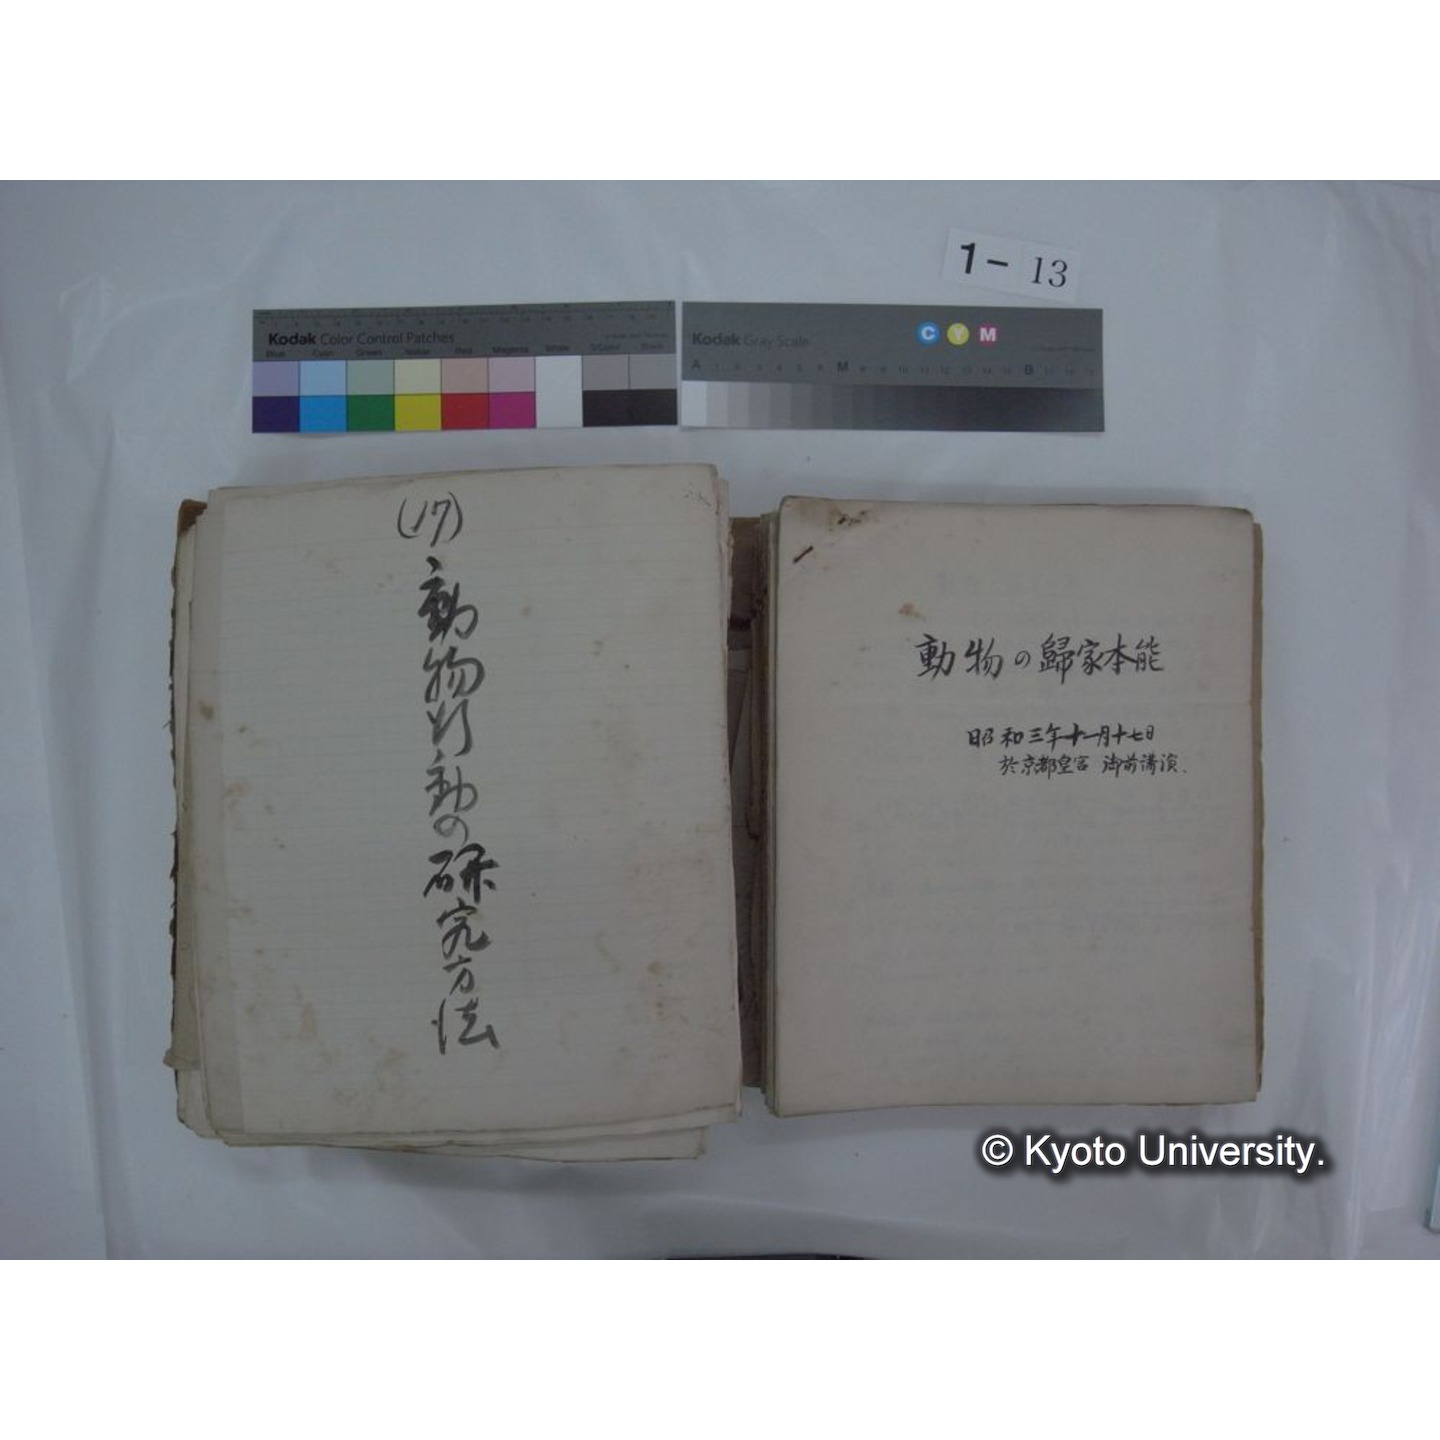 1- 13
Kodak Color Control Patches
Blue Cyan Green Yellow Red Magenta White 3/Color Black
Kodak Gray Scale
C Y M
A 1 2 3 4 5 6 M 8 9 10 11 12 13 14 15 B 17 18 19
(17)
動物行動の研究方法
動物の歸家本能
昭和三年十一月十七日
於京都皇宮 御前講演.
© Kyoto University.